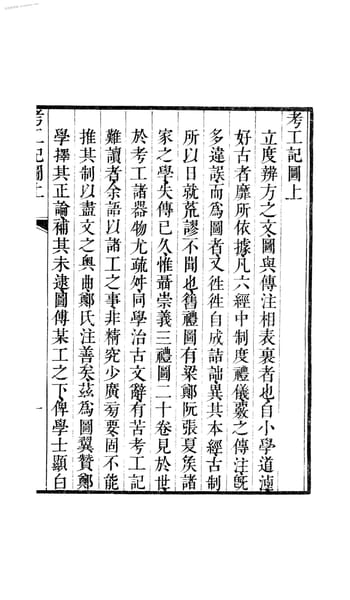 考工記圖上
立度辨方之文圖與傳注相表裏者也自小學道湮
好古者靡所依據凡六經中制度禮儀覈之傳注旣
多違誤而爲圖者又徃徃自成詰詘異其本經古制
所以日就荒謬不聞也舊禮圖有梁鄭阮張夏矦諸
家之學失傳已久惟聶崇義三禮圖二十卷見於世
於考工諸器物尤疏舛同學治古文辭有苦考工記
難讀者余語以諸工之事非精究少廣旁要固不能
推其制以盡文之奧曲鄭氏注善矣茲爲圖翼贊鄭
學擇其正論補其未逮圖傅某工之下俾學士顯白
考工記圖上
一